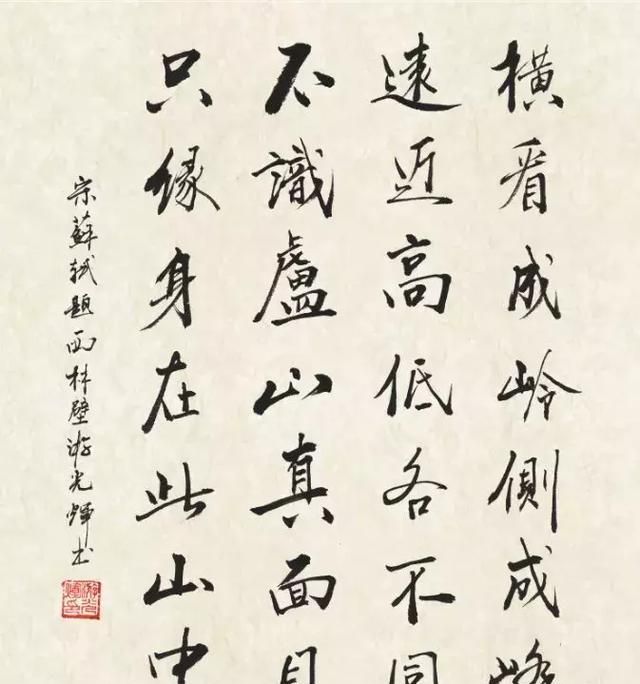 横看成岭側成峰
遠近高低各不同
不識盧山真面目
只緣身在此山中
宋蘇軾題西林壁游光輝书